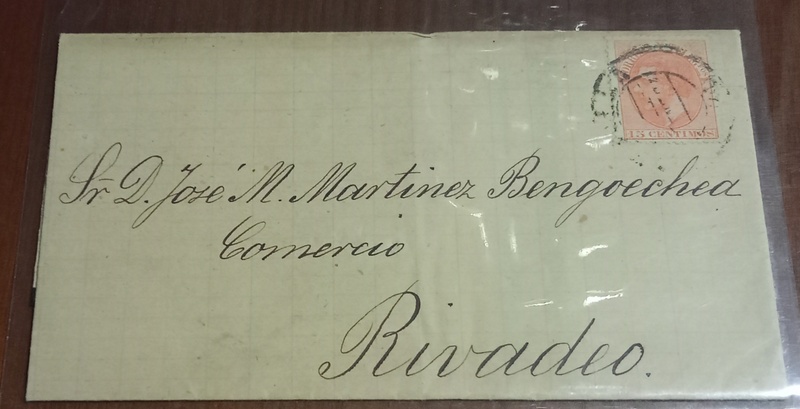 15 CENTIMOS
Sr. D. José M. Martinez Bengoechea
Comercio
Rivadeo.